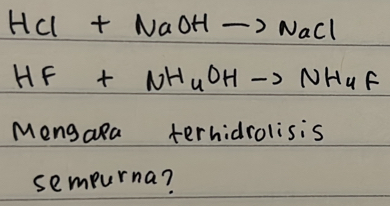 HCl + NaOH -> NaCl
HF + NH4OH -> NH4F
Mengapa terhidrolisis
sempurna?